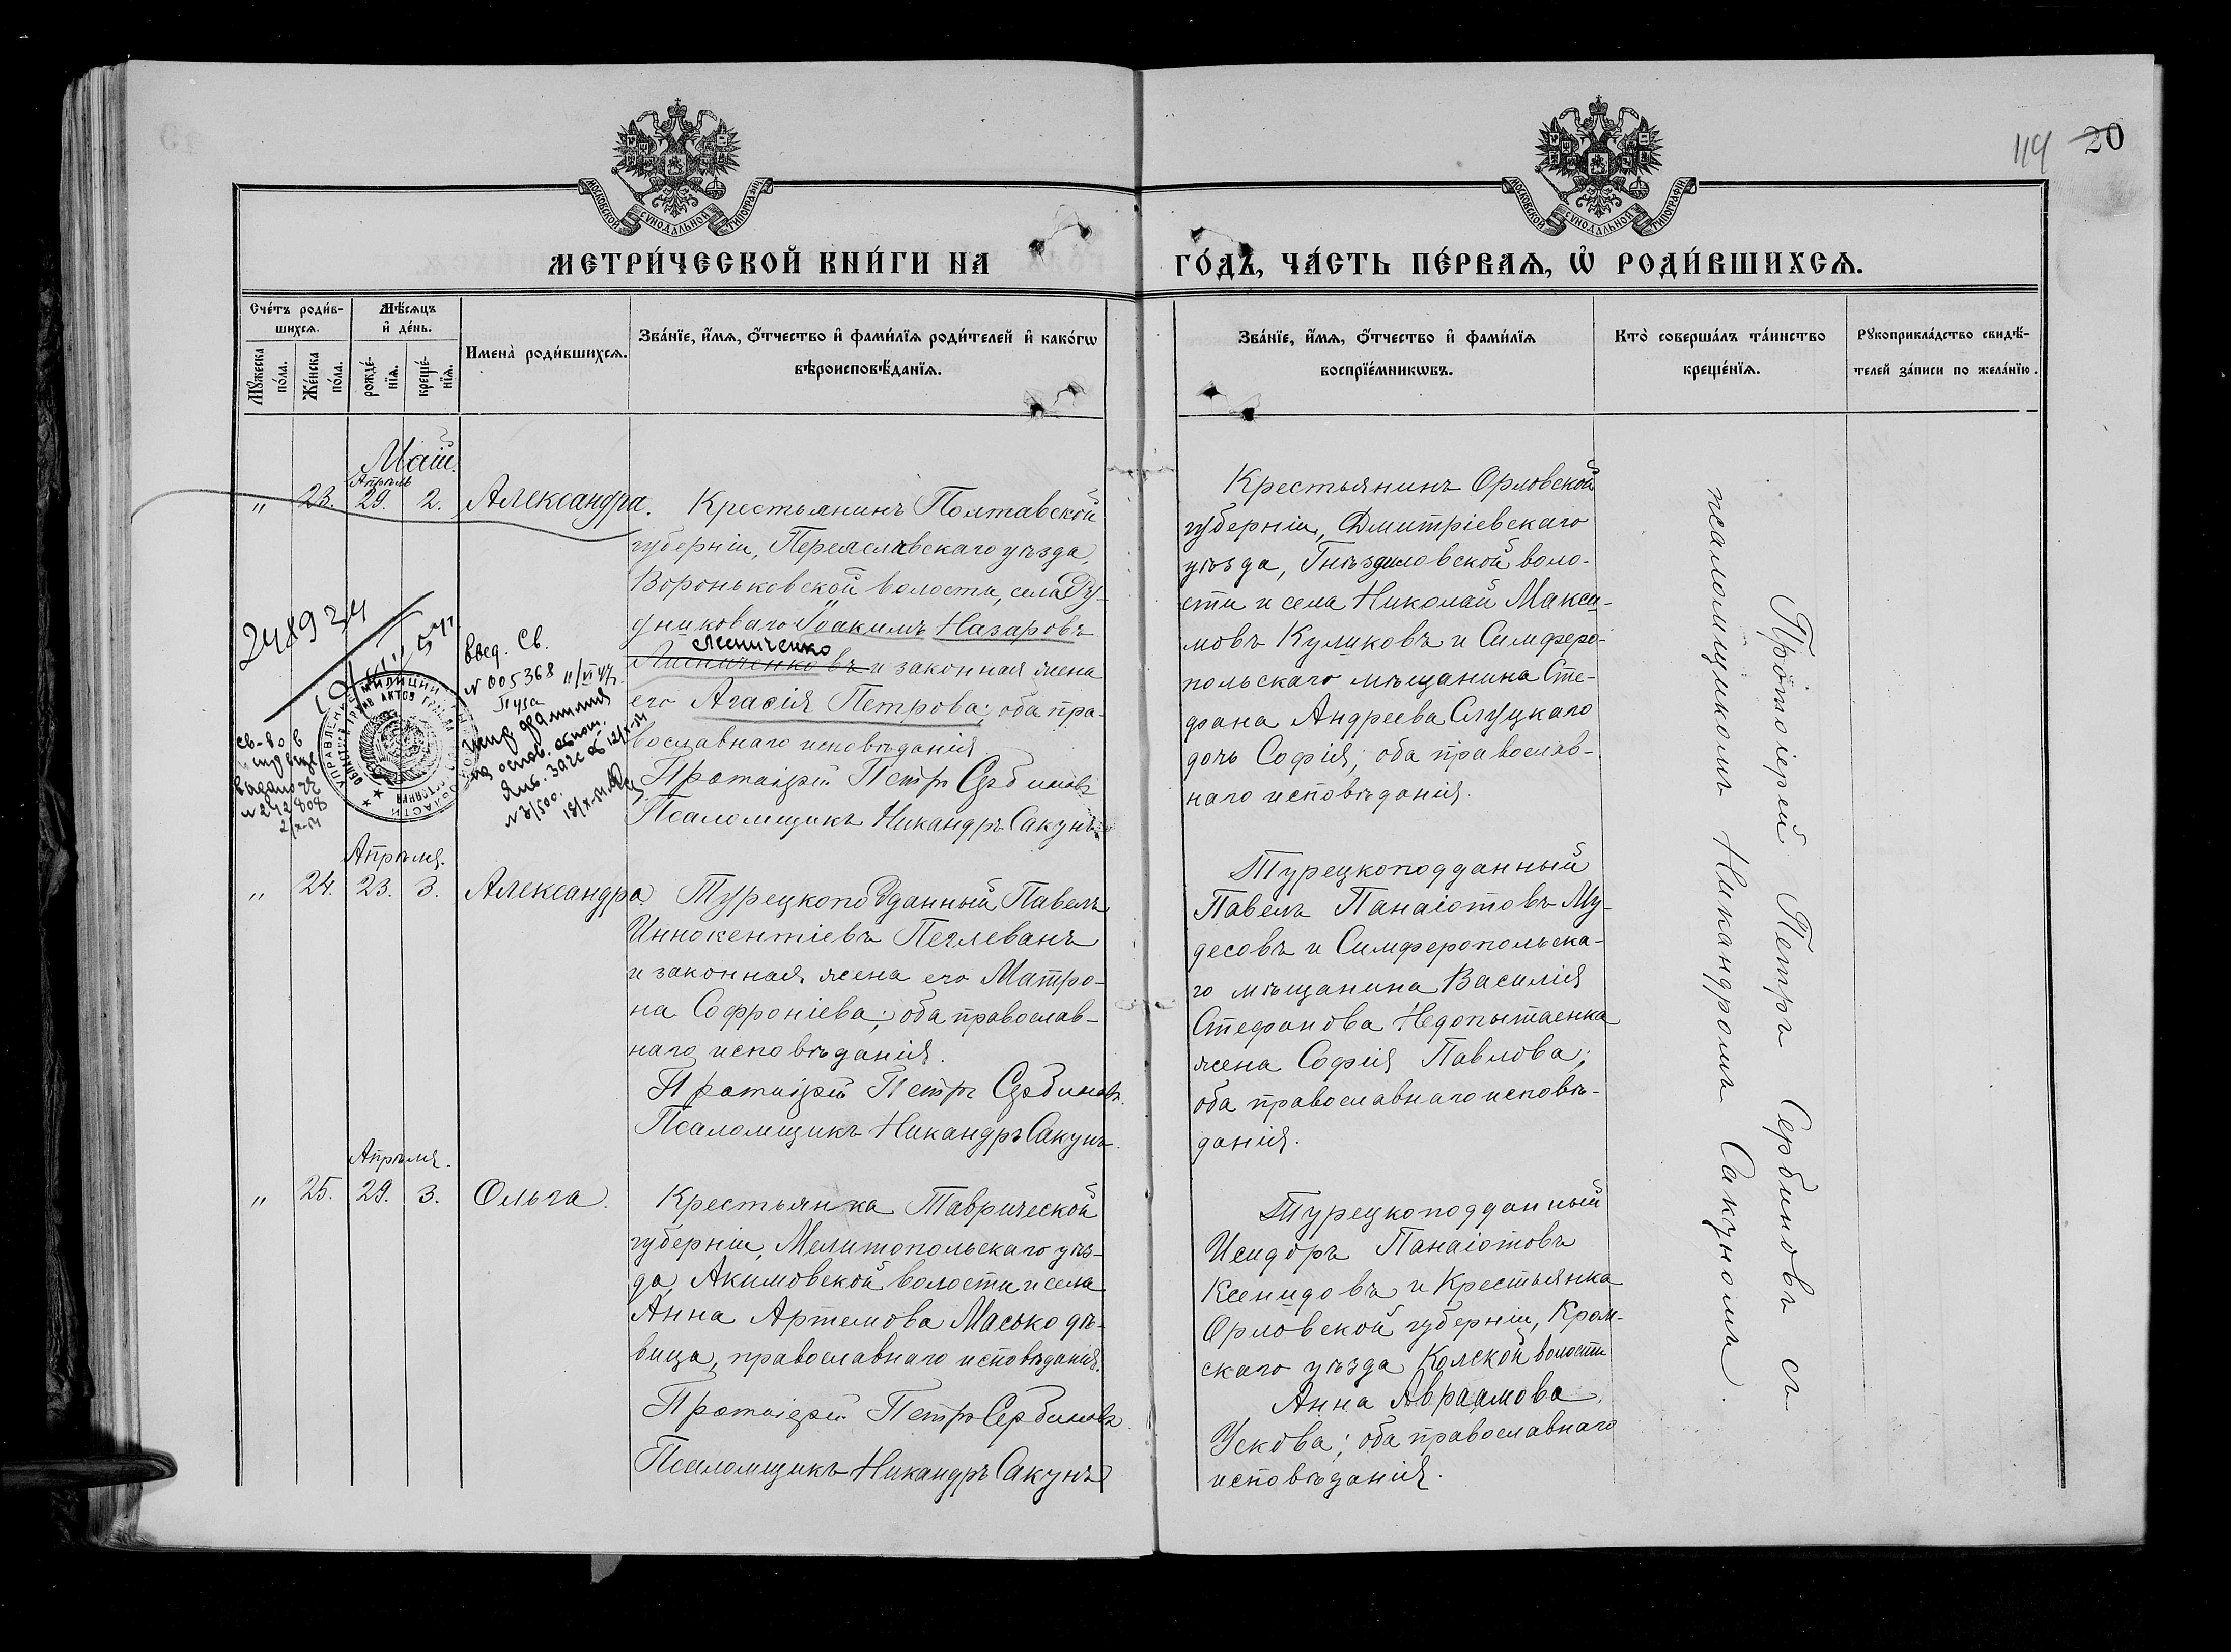 119 20
МОСКОВСКОЙ СѴНОДАЛЬНОЙ ТИПОГРАФІИ
МОСКОВСКОЙ СѴНОДАЛЬНОЙ ТИПОГРАФІИ
МЕТРИ́ЧЕСКОЙ КНИ́ГИ НА
ГО́ДЪ, ЧА́СТЬ ПЕ́РВАѦ, Ѡ҆ РОДИ́ВШИХСѦ.
Сче́тъ роди́в-
шихсѧ.
Мꙋ́жеска
по́ла.
Же́нска
по́ла.
Мѣ́сѧцъ
и҆ де́нь.
рожде́-
нїѧ.
креще́-
нїѧ.
Имена̀ роди́вшихсѧ.
Зва́нїе, и҆́мѧ, ѻ҆́тчество и҆ фами́лїѧ роди́телей и҆ како́гѡ
вѣроисповѣ́данїѧ.
Зва́нїе, и҆́мѧ, ѻ҆́тчество и҆ фами́лїѧ
воспрїе́мникѡвъ.
Кто̀ соверша́лъ та́инство
креще́нїѧ.
Рꙋкоприкла́дство свидѣ́-
телей за́писи по жела́нїю.
Май.
Апрѣль
„ 23. 29. 2. Александра.
Крестьянинъ Полтавской
губерніи, Переяславскаго уѣзда,
Вороньковской волости, села Ру-
дниковаго Іоакимъ Назаровъ
Лисниченко
Лисниченковъ и законная жена
его Агафія Петрова; оба пра-
вославнаго исповѣданія.
Протоіерей Петръ Сербиновъ
Псаломщикъ Никандръ Сакунъ.
248934
Введ. Св.
N 005368 11/VI 47г.
на основ.
N 3/500.
Св-во в
N 242808
УПРАВЛЕНИЕ МИЛИЦИИ
Крестьянинъ Орловской
губерніи, Дмитріевскаго
уѣзда, Гнѣздиловской воло-
сти и села Николай Макси-
мовъ Куликовъ и Симферо-
польскаго мѣщанина Сте-
фана Андреева Слуцкаго
дочь Софія; оба православ-
наго исповѣданія.
Апрѣля.
„ 24. 23. 3. Александра
Турецкоподданный Павелъ
Иннокентіевъ Пеглеванъ
и законная жена его Матро-
на Софроніева; оба православ-
наго исповѣданія.
Протоіерей Петръ Сербиновъ.
Псаломщикъ Никандръ Сакунъ.
Турецкоподданный
Павелъ Панаіотовъ Му-
десовъ и Симферопольска-
го мѣщанина Василія
Стефанова Недопытаенка
жена Софія Павлова;
оба православнаго исповѣ-
данія.
Апрѣля.
„ 25. 29. 3. Ольга.
Крестьянка Таврической
губерніи, Мелитопольскаго уѣз-
да, Акимовской волости и села
Анна Артемова Масько дѣ-
вица, православнаго исповѣданія.
Протоіерей Петръ Сербиновъ.
Псаломщикъ Никандръ Сакунъ
Турецкоподданный
Исидоръ Панаіотовъ
Ксенидовъ и Крестьянка
Орловской губерніи, Кром-
скаго уѣзда Колской волости
Анна Авраамова
Ускова; оба православнаго
исповѣданія.
Протоіерей Петръ Сербиновъ съ
псаломщикомъ Никандромъ Сакуномъ.